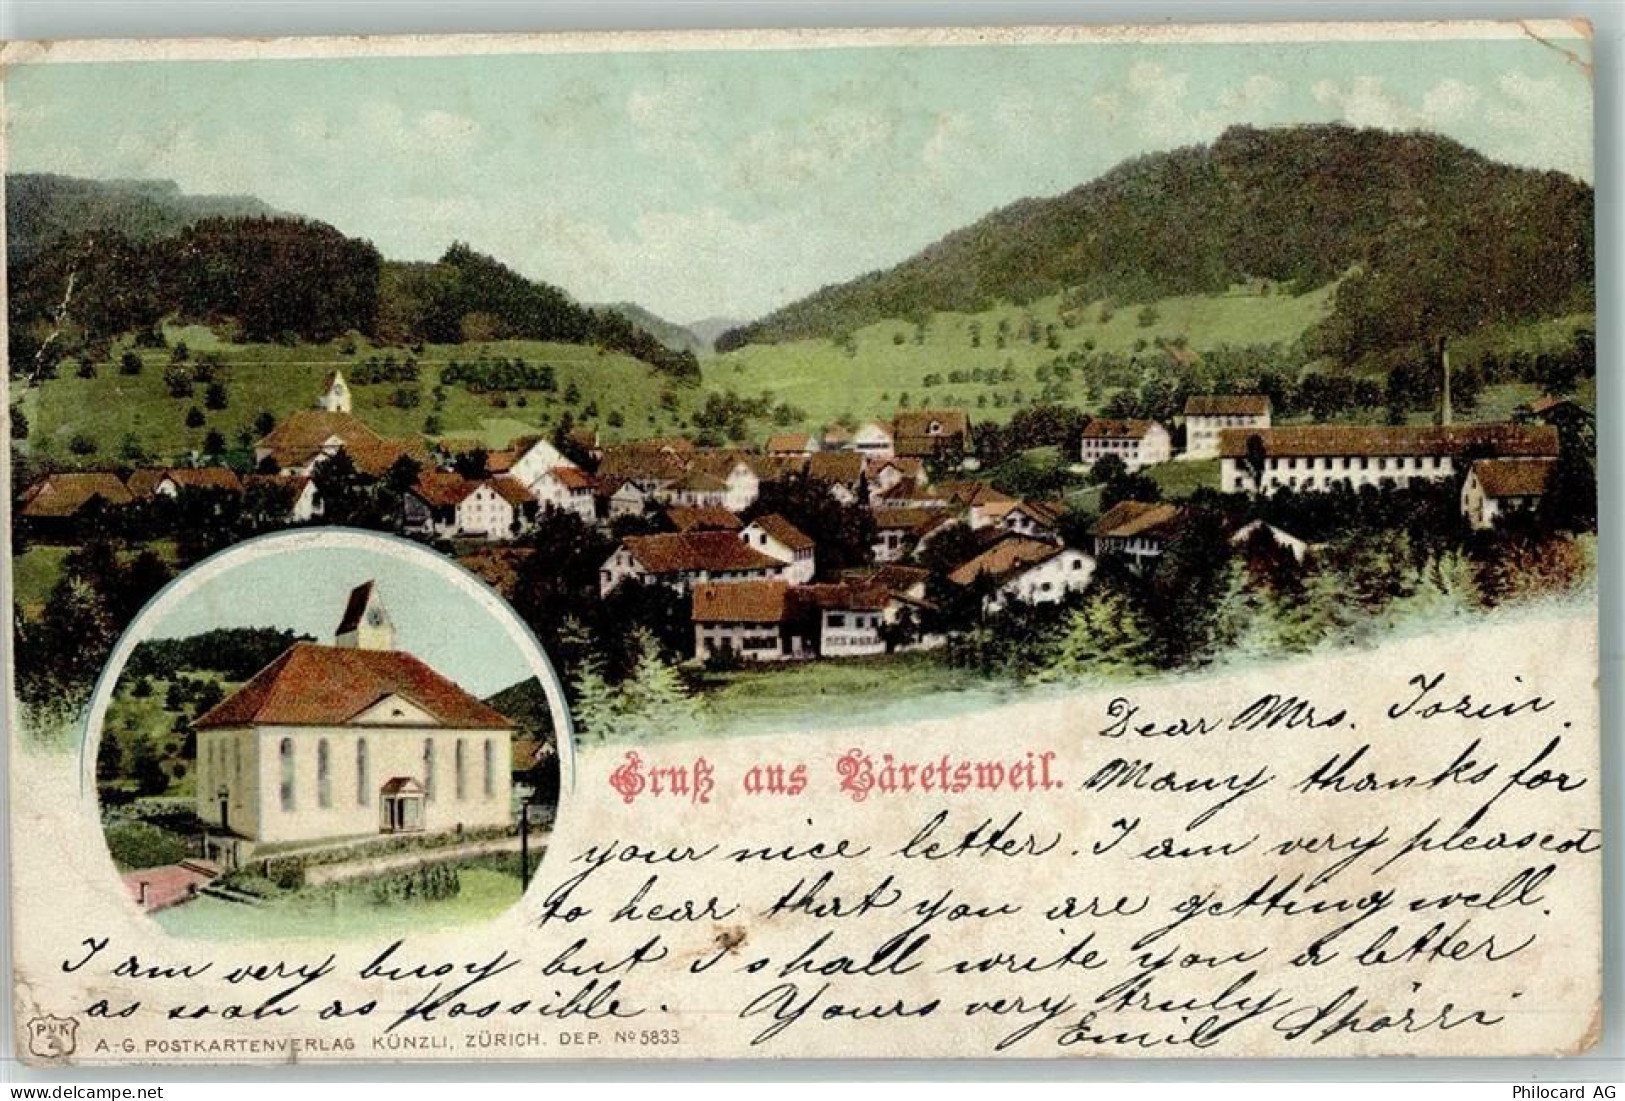 Gruß aus Bäretsweil.
Dear Mrs. Tozin.
Many thanks for
your nice letter. I am very pleased
to hear that you are getting well.
I am very busy but I shall write you a letter
as soon as possible. Yours very truly
Emil Spörri
PVK
Z
A.-G. POSTKARTENVERLAG KÜNZLI, ZÜRICH. DEP. No 5833
Philocard AG